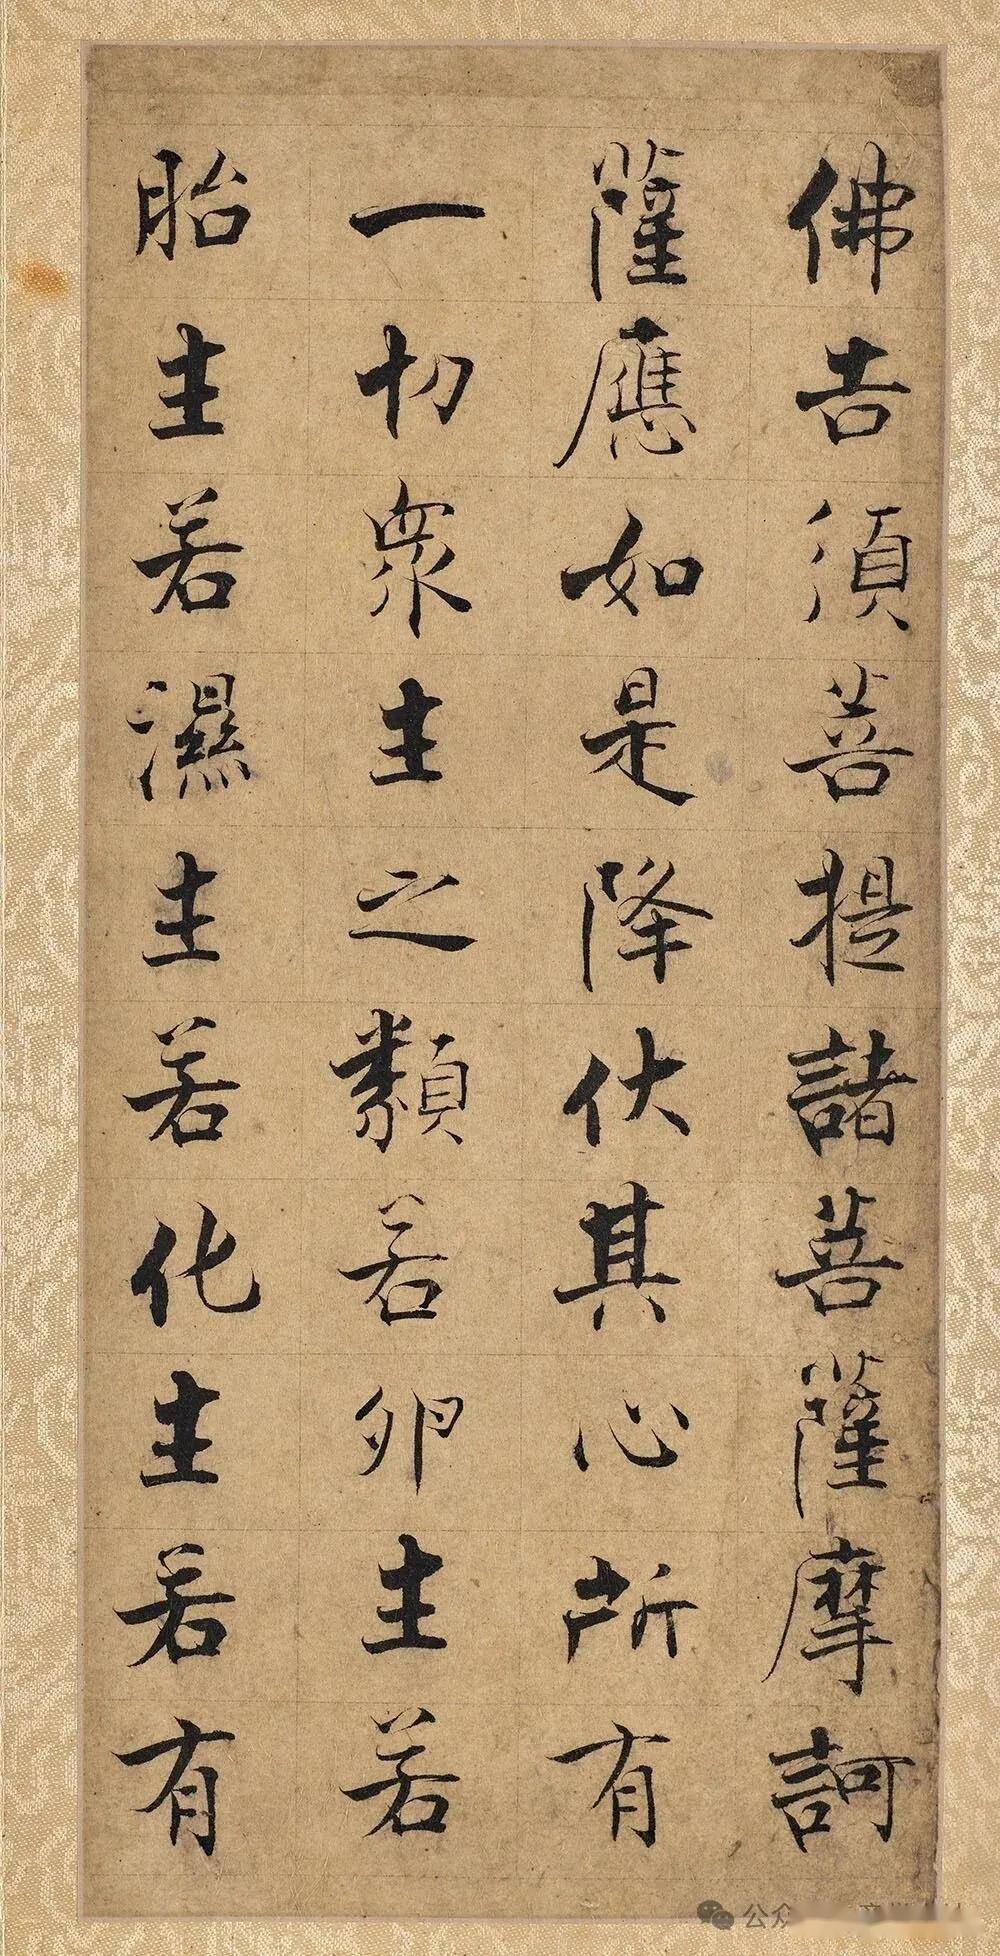 佛告須菩提諸菩薩摩訶
薩應如是降伏其心所有
一切衆生之類若卵生若
胎生若濕生若化生若有
公众